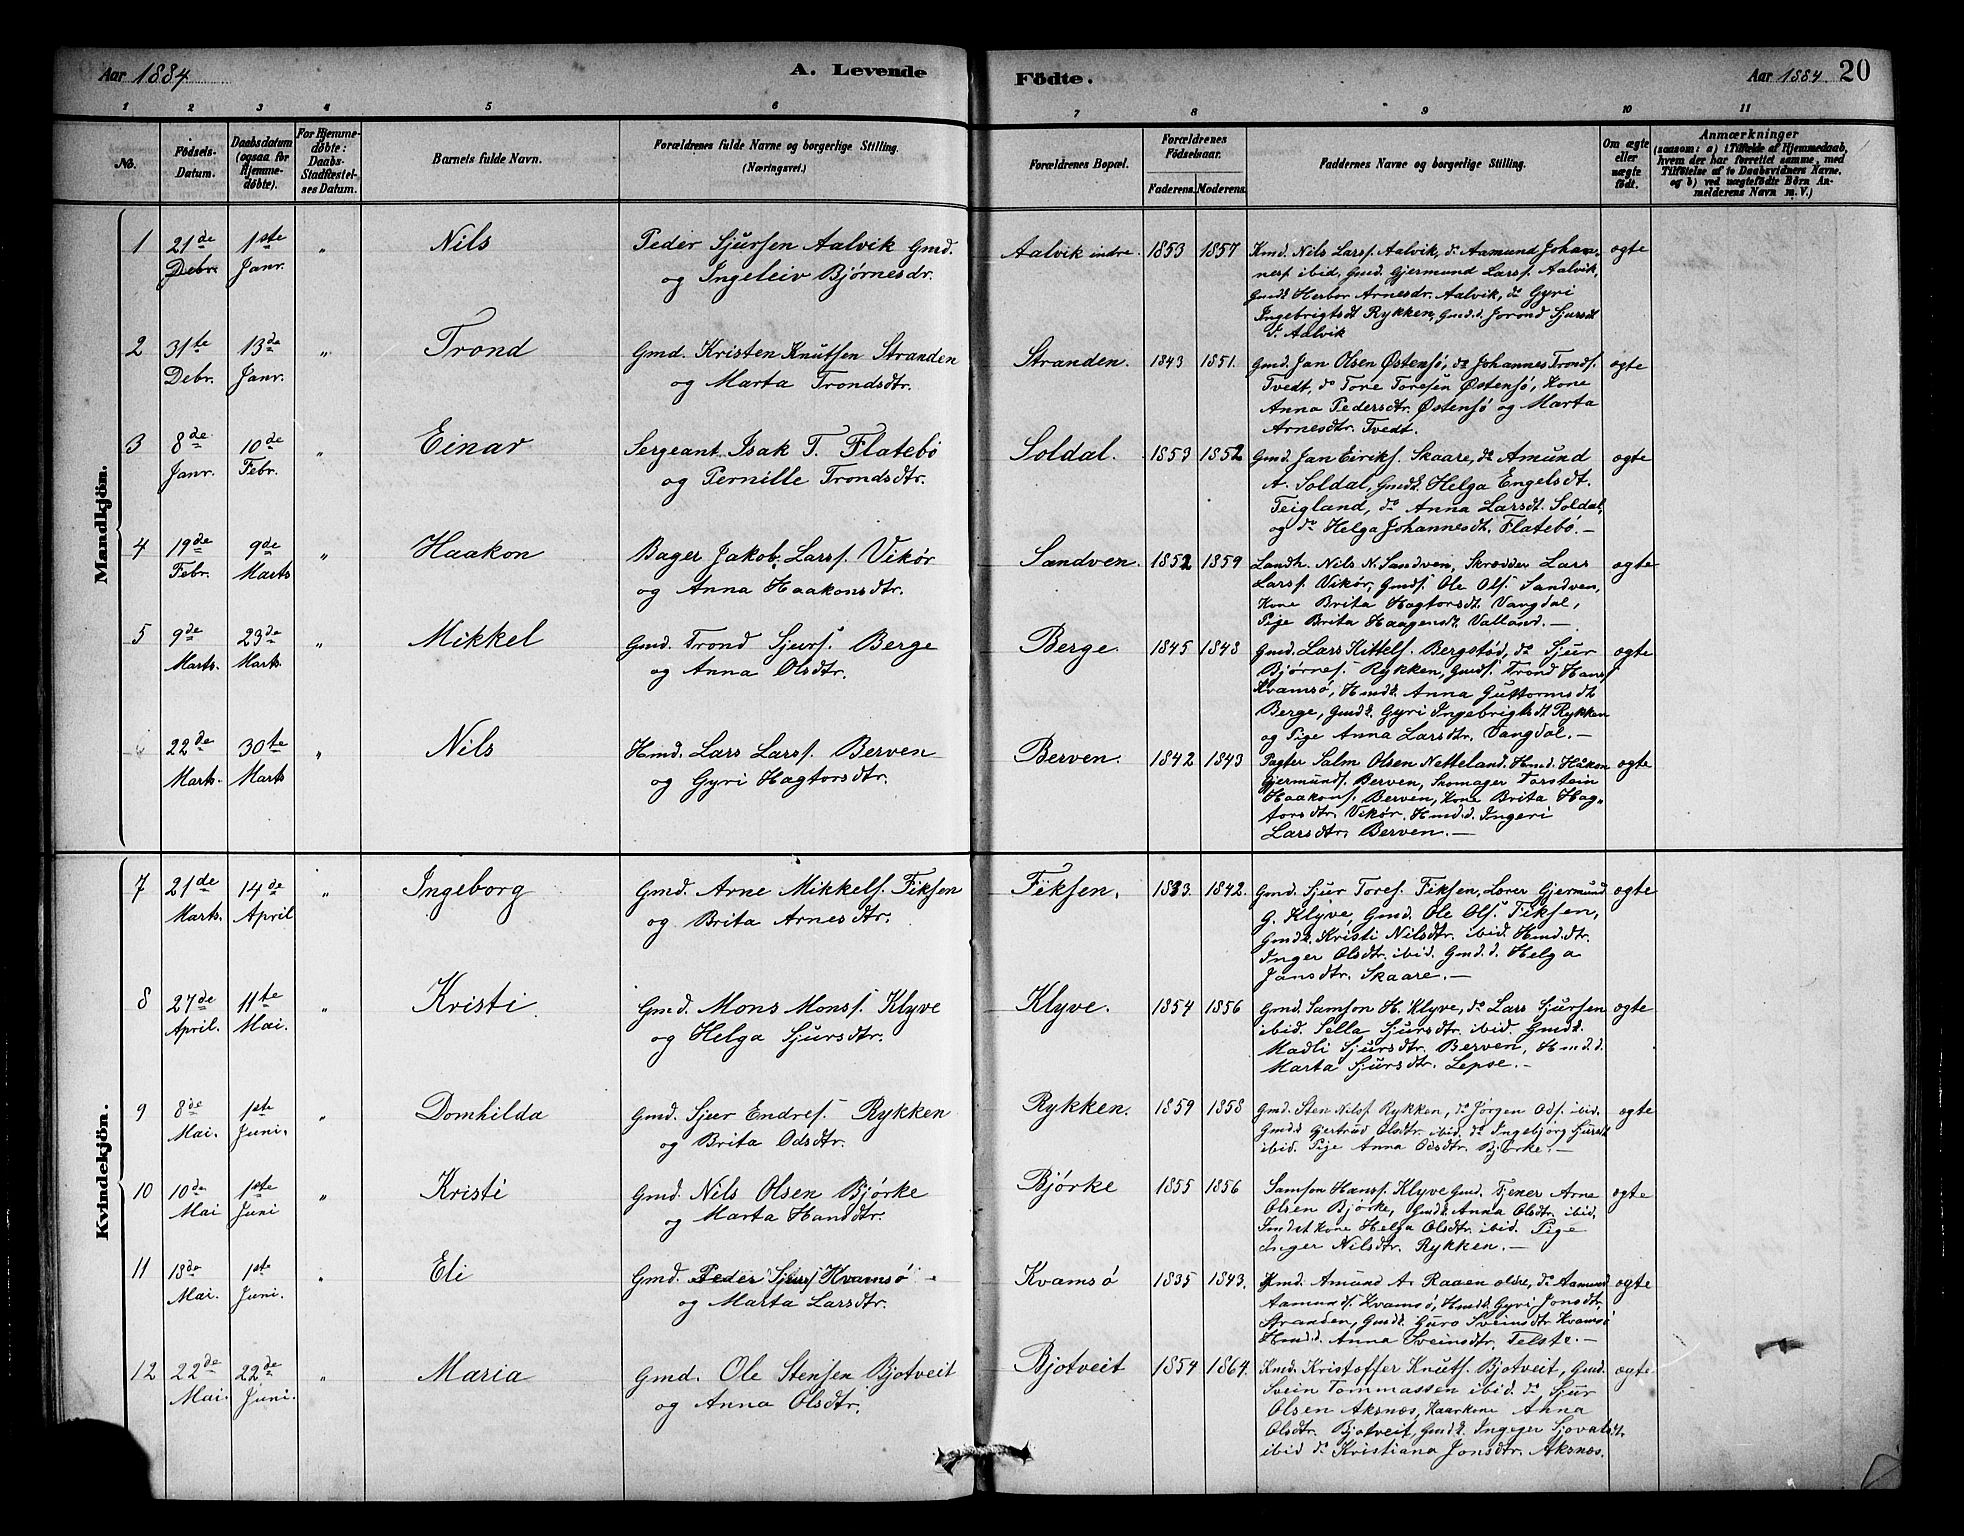 Aar 1884
A. Levende
Födte.
Aar 1884
20
1 2 3 4 5 6 7 8 9 10 11
No.
Födsels-
Datum.
Daabsdatum
(ogsaa for
Hjemme-
döbte).
For Hjemme-
döbte:
Daabs-
Stadfæstel-
ses Datum.
Barnets fulde Navn.
Forældrenes fulde Navne og borgerlige Stilling.
(Næringsvei.)
Forældrenes Bopæl.
Forældrenes
Födselsaar.
Faderens. Moderens.
Faddernes Navne og borgerlige Stilling.
Om ægte
eller
uægte
födt.
Anmærkninger
(saasom: a) i Tilfælde af Hjemmedaab,
hvem der har forrettet samme, med
Tilföielse af to Daabsvidners Navne,
og b) ved uægtefödte Börn An-
melderens Navn m. V.)
Mandkjön.
1 21de 1ste " Nils Peder Sjursen Aalvik Gmd. Aalvik indre. 1853 1857 Kmd. Nils Larss. Aalvik, do Aamund Johan- ægte
Debr. Janr. og Ingeleiv Bjørnesdr. ness ibid, Gmd. Gjermund Larss. Aalvik,
Gmdk Herbor Arnesdr. Aalvik, do Gyri
Ingebrigtsdt Rykken, Gmd.d. Jorond Sjursdt
I. Aalvik
2 31te 13de " Trond Gmd. Kristen Knutsen Stranden Stranden. 1843 1851. Gmd. Jan Olsen Østensö, do Johannes Tronds. ægte
Debr. Janr. og Marta Trondsdtr. Tvedt, do Tore Toresen Østensö, Kone
Anna Pedersdtr. Østensö og Marta
Arnesdtr. Tvedt.
3 8de 10de " Einar Sergeant Isak T. Flatebö Soldal. 1853 1852 Gmd. Jan Eiriks. Skaare, do Amund ægte
Janr. Febr. og Pernille Trondsdtr. A. Soldal, Gmdk. Helga Engelsdt.
Teigland, do Anna Larsdt. Soldal,
og do Helga Johannesdt. Flatebö. —
4 19de 9de " Haakon Bager Jakob Larss. Vikør Sandven. 1852 1859 Landh. Nils N. Sandven, Skrædder Lars ægte
Febr. Marts og Anna Haakonsdtr. Larss. Vikør, Gmds. Ole Ols. Sandven,
Kone Brita Hagtorsdt. Vangdal,
Pige Brita Haagensdt. Valland. —
5 9de 23de " Mikkel Gmd. Trond Sjurs. Berge Berge. 1845 1848 Gmd. Lars Kittels. Bergstød, do Sjur ægte
Marts. Marts. og Anna Olsdtr. Bjørnes. Rykken, Gmds. Trond Hanss
Kvamsö, Hmdk. Anna Guttormsdt
Berge, Gmdk. Gyri Ingebrigtsdt Rykken
og Pige Anna Larsdtr. Vangdal. —
6 22de 30te " Nils Hmd. Lars Larss. Berven Berven. 1842 1843 Pagter Salm Olsen Netteland. Hmd. Håkon ægte
Marts. Marts og Gyri Hagtorsdtr. Gjermunds. Berven, Skomager Torstein
Haakons. Berven, Kone Brita Hag-
torsdtr. Vikør. Hmd.d. Ingeri
Larsdtr. Berven. —
Kvindekjön.
7 21de 14de " Ingeborg Gmd. Arne Mikkels. Fiksen Fiksen. 1833. 1842. Gmd. Sjur Tores. Fiksen, Lærer Gjermund ægte
Marts. April og Brita Arnesdtr. G. Klyve, Gmd. Ole Ols. Fiksen,
Gmdk. Kristi Nilsdtr. ibid. Hmd.dtr.
Inger Olsdtr. ibid. Gmd.d. Helga
Jansdtr. Skaare. —
8 27de 11te " Kristi Gmd. Mons Monss. Klyve Klyve. 1854 1856 Gmd. Samson H. Klyve, do Lars Sjursen ægte
April. Mai. og Helga Sjursdtr. ibid. Sella Sjursdtr. ibid. Gmdk.
Madli Sjursdtr. Berven, Hmd.d.
Marta Sjursdtr. Lepse. —
9 8de 1ste " Domhilda Gmd. Sjur Endres. Rykken Rykken. 1859 1858 Gmd. Sten Nilss Rykken, do Jørgen Ods. ibid. ægte
Mai. Juni. og Brita Odsdtr. Gmdk Gjertrud Olsdtr ibid. do Ingebjørg Sjursdt
ibid. Pige Anna Odsdtr. Bjørke. —
10 10de 1ste " Kristi Gmd. Nils Olsen Bjørke Bjørke 1855 1856 Samson Hanss. Klyve Gmd. Tjener Arne ægte
Mai Juni og Marta Hansdtr. Olsen Bjørke, Gmdk. Anna Olsdtr. ibid.
Indst.kone Helga Olsdtr. ibid. Pige
Inger Nilsdtr. Rykken. —
11 18de 1ste " Eli Gmd. Peder Sjurss Kvamsö Kvamsö 1835 1843. Kmd. Amund A. Raaen ældre, do Aamund ægte
Mai. Juni. og Marta Larsdtr. Aamunds. Kvamsö, Hmdk. Gyri Jonsdtr.
Stranden, Gmdk. Guro Sveinsdtr Kvamsö
Hmd.d. Anna Sveinsdtr. Telste. —
12 22de 22de " Maria Gmd. Ole Stensen Bjotveit Bjotveit 1854 1864. Kmd. Kristoffer Knuts. Bjotveit, Gmd. ægte
Mai. Juni. og Anna Olsdtr. Svein Tommassen ibid. do Sjur
Olsen Aksnæs, Kaarkone Anna
Olsdtr. Bjotveit, Gmdk. Ingeger Sjovatsdt.
ibid do Kristiana Jonsdtr. Aksnæs.